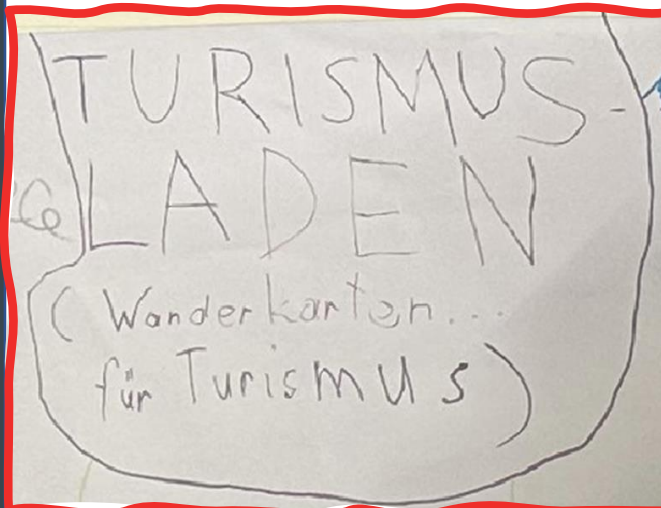 TURISMUS-
LADEN
(Wanderkarten...
für Turismus)